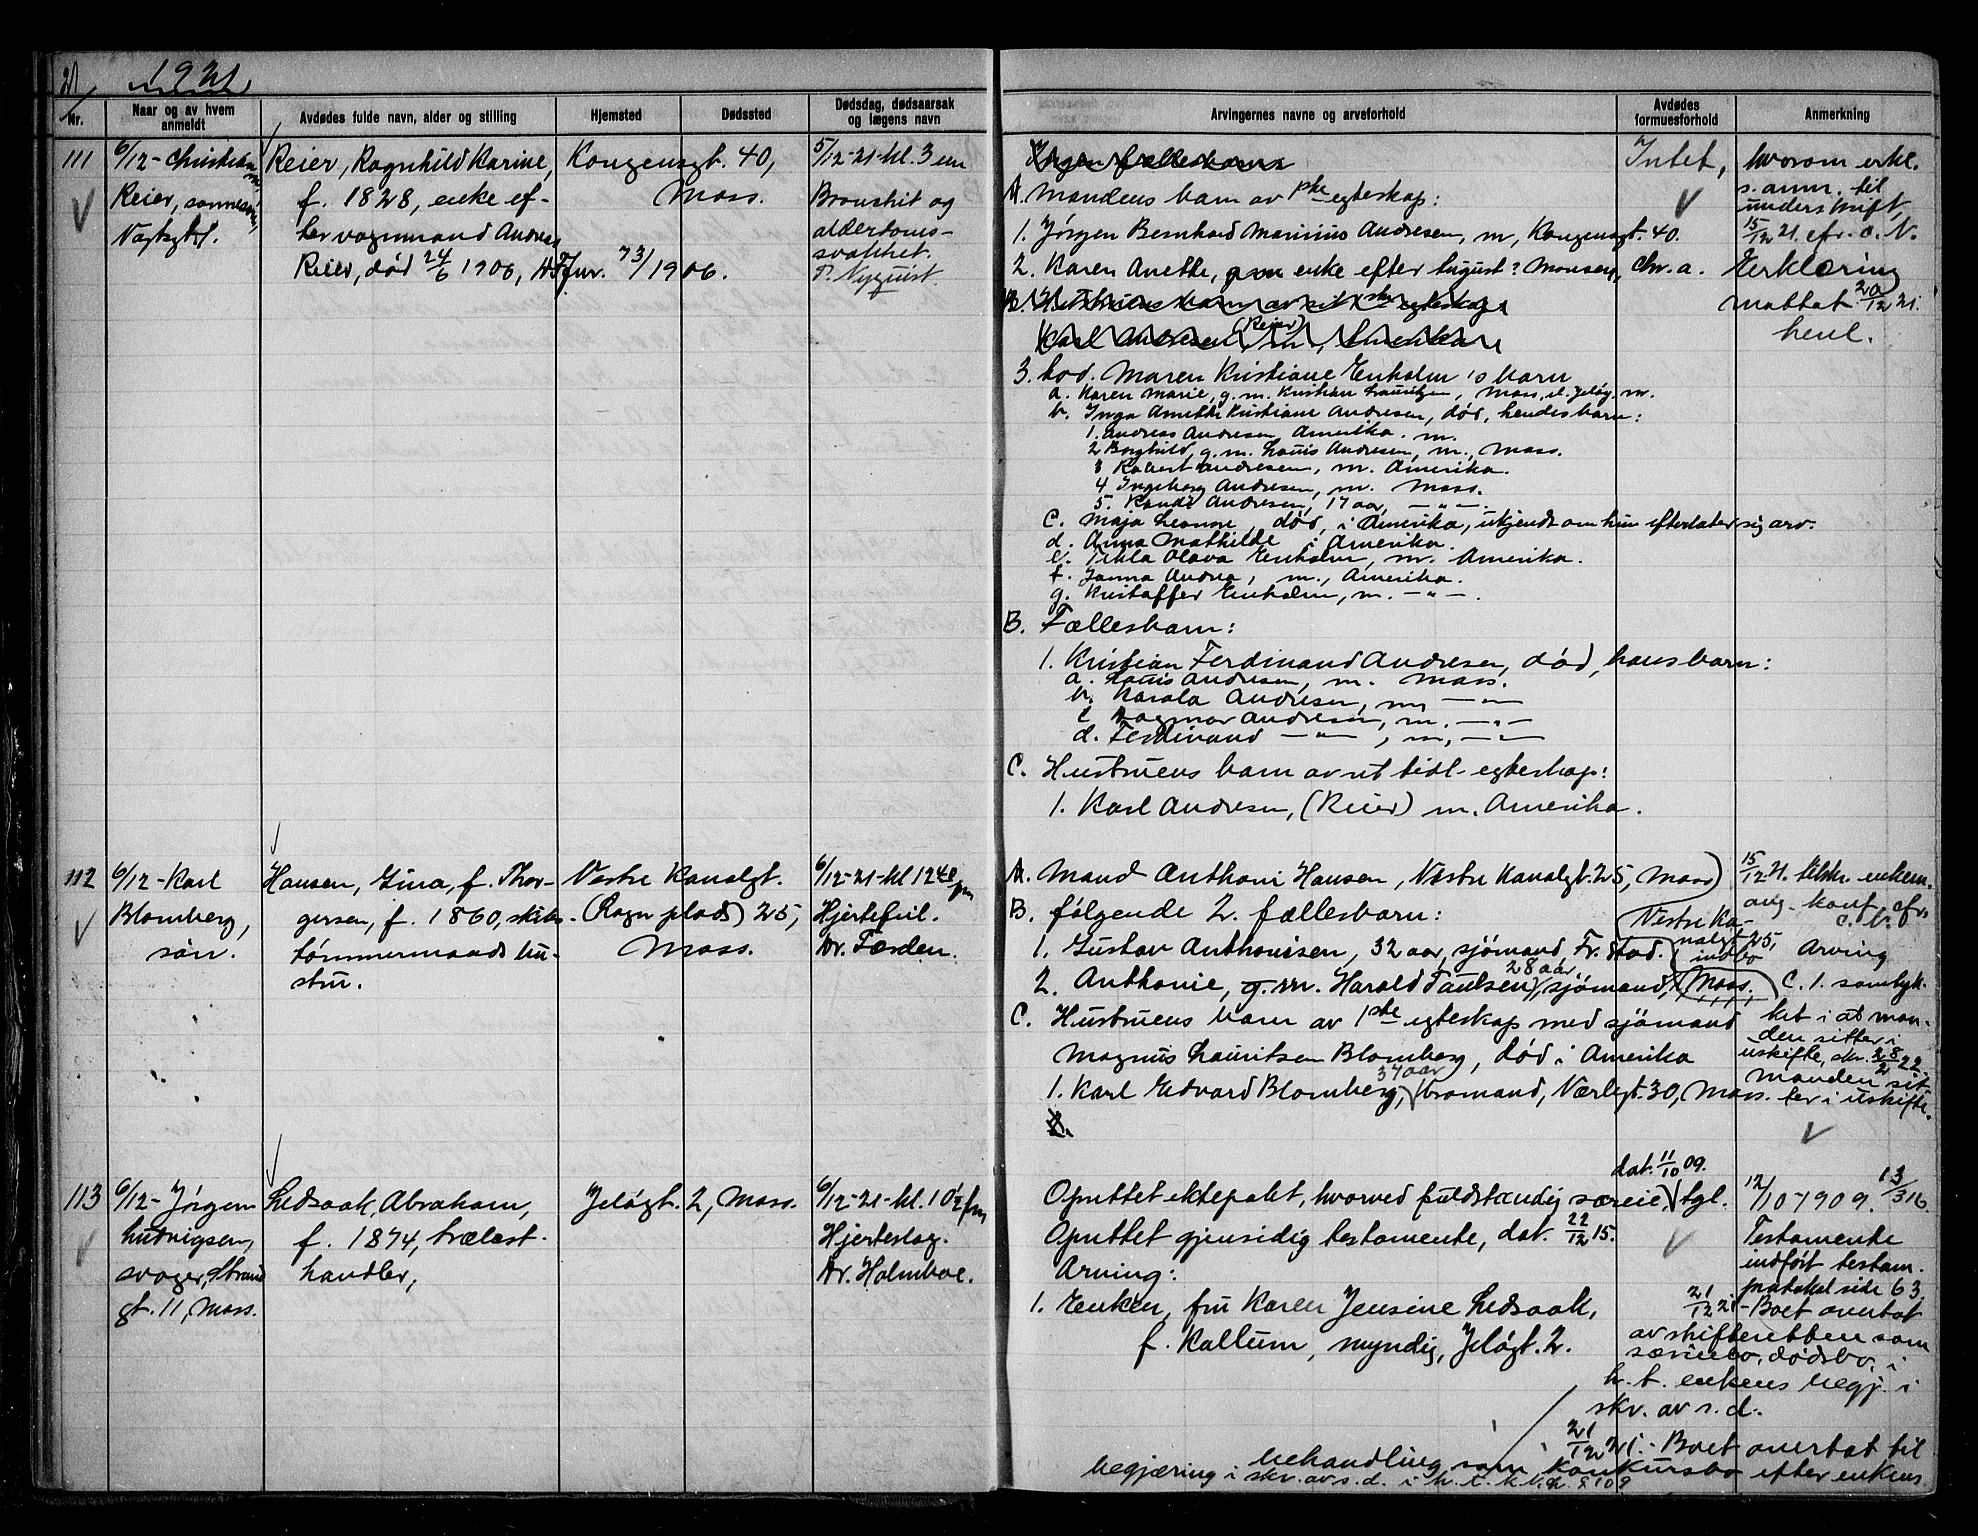 1921
Nr.
Naar og av hvem anmeldt
Avdødes fulde navn, alder og stilling
Hjemsted
Dødssted
Dødsdag, dødsaarsak og lægens navn
Arvingernes navne og arveforhold
Avdødes formuesforhold
Anmerkning
111
6/12 - Christian
Reier, sønnesøn,
Vogtsgt.
Reier, Ragnhild Karine,
f. 1828, enke ef-
ter vognmand Andreas
Reier, død 24/6 1906,
73/1906.
Kongensgt. 40,
Moss.
5/12-21-kl. 3 em
Bronshit og
alderdoms-
svakhet.
Nyquist.
Ingen fællesbarn
A. Mandens barn av 1ste egteskap:
1. Jørgen Bernhard Marinius Andresen, m, Kongensgt. 40.
2. Karen Anette, enke efter August? Monsen, Chr.a.
B. Hustruens barn av sit 1ste egteskap
Karl Andresen (Reier), m, Amerika
3. Avd. Maren Kristiane Enholm's barn
a. Karen Marie, g.m. Kristian Lauritzen, Moss, Jeløy, m.
b. Inga Amette Kristiane Andresen, død, hendes barn:
1. Andreas Andresen Amerika. m.
2 Borghild, g.m. Louis Andresen, m., Moss.
3 Robert Andresen, m. Amerika.
4 Ingeborg Andresen, m. Moss.
5. Randi Andresen, 17 aar, -"-.
C. Maja Leonore, død, i Amerika, ukjendt om hun efterlater sig arv.
d. Anna Mathilde i Amerika.
e. Tekla Olava Enholm, m. Amerika.
f. Janna Andrea, m., Amerika.
g. Kristoffer Enholm, m. -"-.
B. Fællesbarn:
1. Kristian Ferdinand Andresen, død, hans barn:
a. Louis Andresen, m. Moss.
b. Karola Andresen, m, -"-
c Dagmar Andresen, m. -"-
d. Ferdinand -"-, m, -"-
C. Hustruens barn av et tidl. egteskap:
1. Karl Andresen, (Reier) m. Amerika.
Intet,
hvorom erkl.
s. anm. til
underskrift,
15/12 21. cfr. c. N.
Erklæring
mottat 20/12 21.
henl.
112
6/12 - Karl
Blomberg,
søn.
Hansen, Gina, f. Thor-
gersen, f. 1860, skibs-
tømmermands hu-
stru.
Vestre Kanalgt.
(Rogn plads) 25,
Moss.
6/12-21-kl 12 40 fm
Hjertefeil.
Dr. Færden.
A. Mand Anthoni Hansen, Vestre Kanalgt. 25, Moss
B. følgende 2. fællesbarn:
1. Gustav Anthonisen, 32 aar, sjømand, Fr.stad.
2. Anthonie, g.m. Harald Paulsen, 28 aar, sjømand, Moss.
C. Hustruens barn av 1ste egteskap med sjømand
Magnus Lauritsen Blomberg, død i Amerika
1. Karl Edvard Blomberg, 37 aar, bromand, Værlegt. 30, Moss.
Vestre Ka-
nalgt. 25,
indbo
15/12 21. tilskr. enkem.
ang. kont. cfr.
c. N.
Arving
C. 1. samtyk-
ket i at man-
den sitter i
uskifte, skr. 28/2 22.
Manden sit-
ter i uskifte.
113
6/12 - Jørgen
Ludvigsen,
svoger, Strand
gt. 11, Moss.
Ledsaak, Abraham,
f. 1874, trælast-
handler,
Jeløgt. 2, Moss.
6/12-21-kl. 10 1/2 fm
Hjerteslag.
Dr. Holmboe.
Oprettet ektepakt, hvorved fuldstændig særeie, dat. 11/10 09. tgl. 12/10-1909. 13/316.
Oprettet gjensidig testamente, dat. 22/12 15.
Arving:
1. Enken, fru Karen Jensine Ledsaak,
f. Kallum, myndig, Jeløgt. 2.
Testamente
indført testam.
protokol side 63.
21/12 21 - Boet overtat
av skifteretten som
særeiebo, dødsbo, i
h. t. enkens begj. i
skr. av s.d.
21/12 21. - Boet overtat til
behandling som konkursbo efter enkens
begjæring i skr. av s.d. i h. t. k.l. § 109